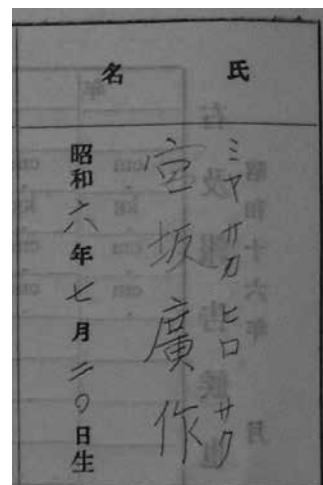 氏名
ミヤサカ ヒロ サク
宮坂廣作
昭和六年七月二〇日生